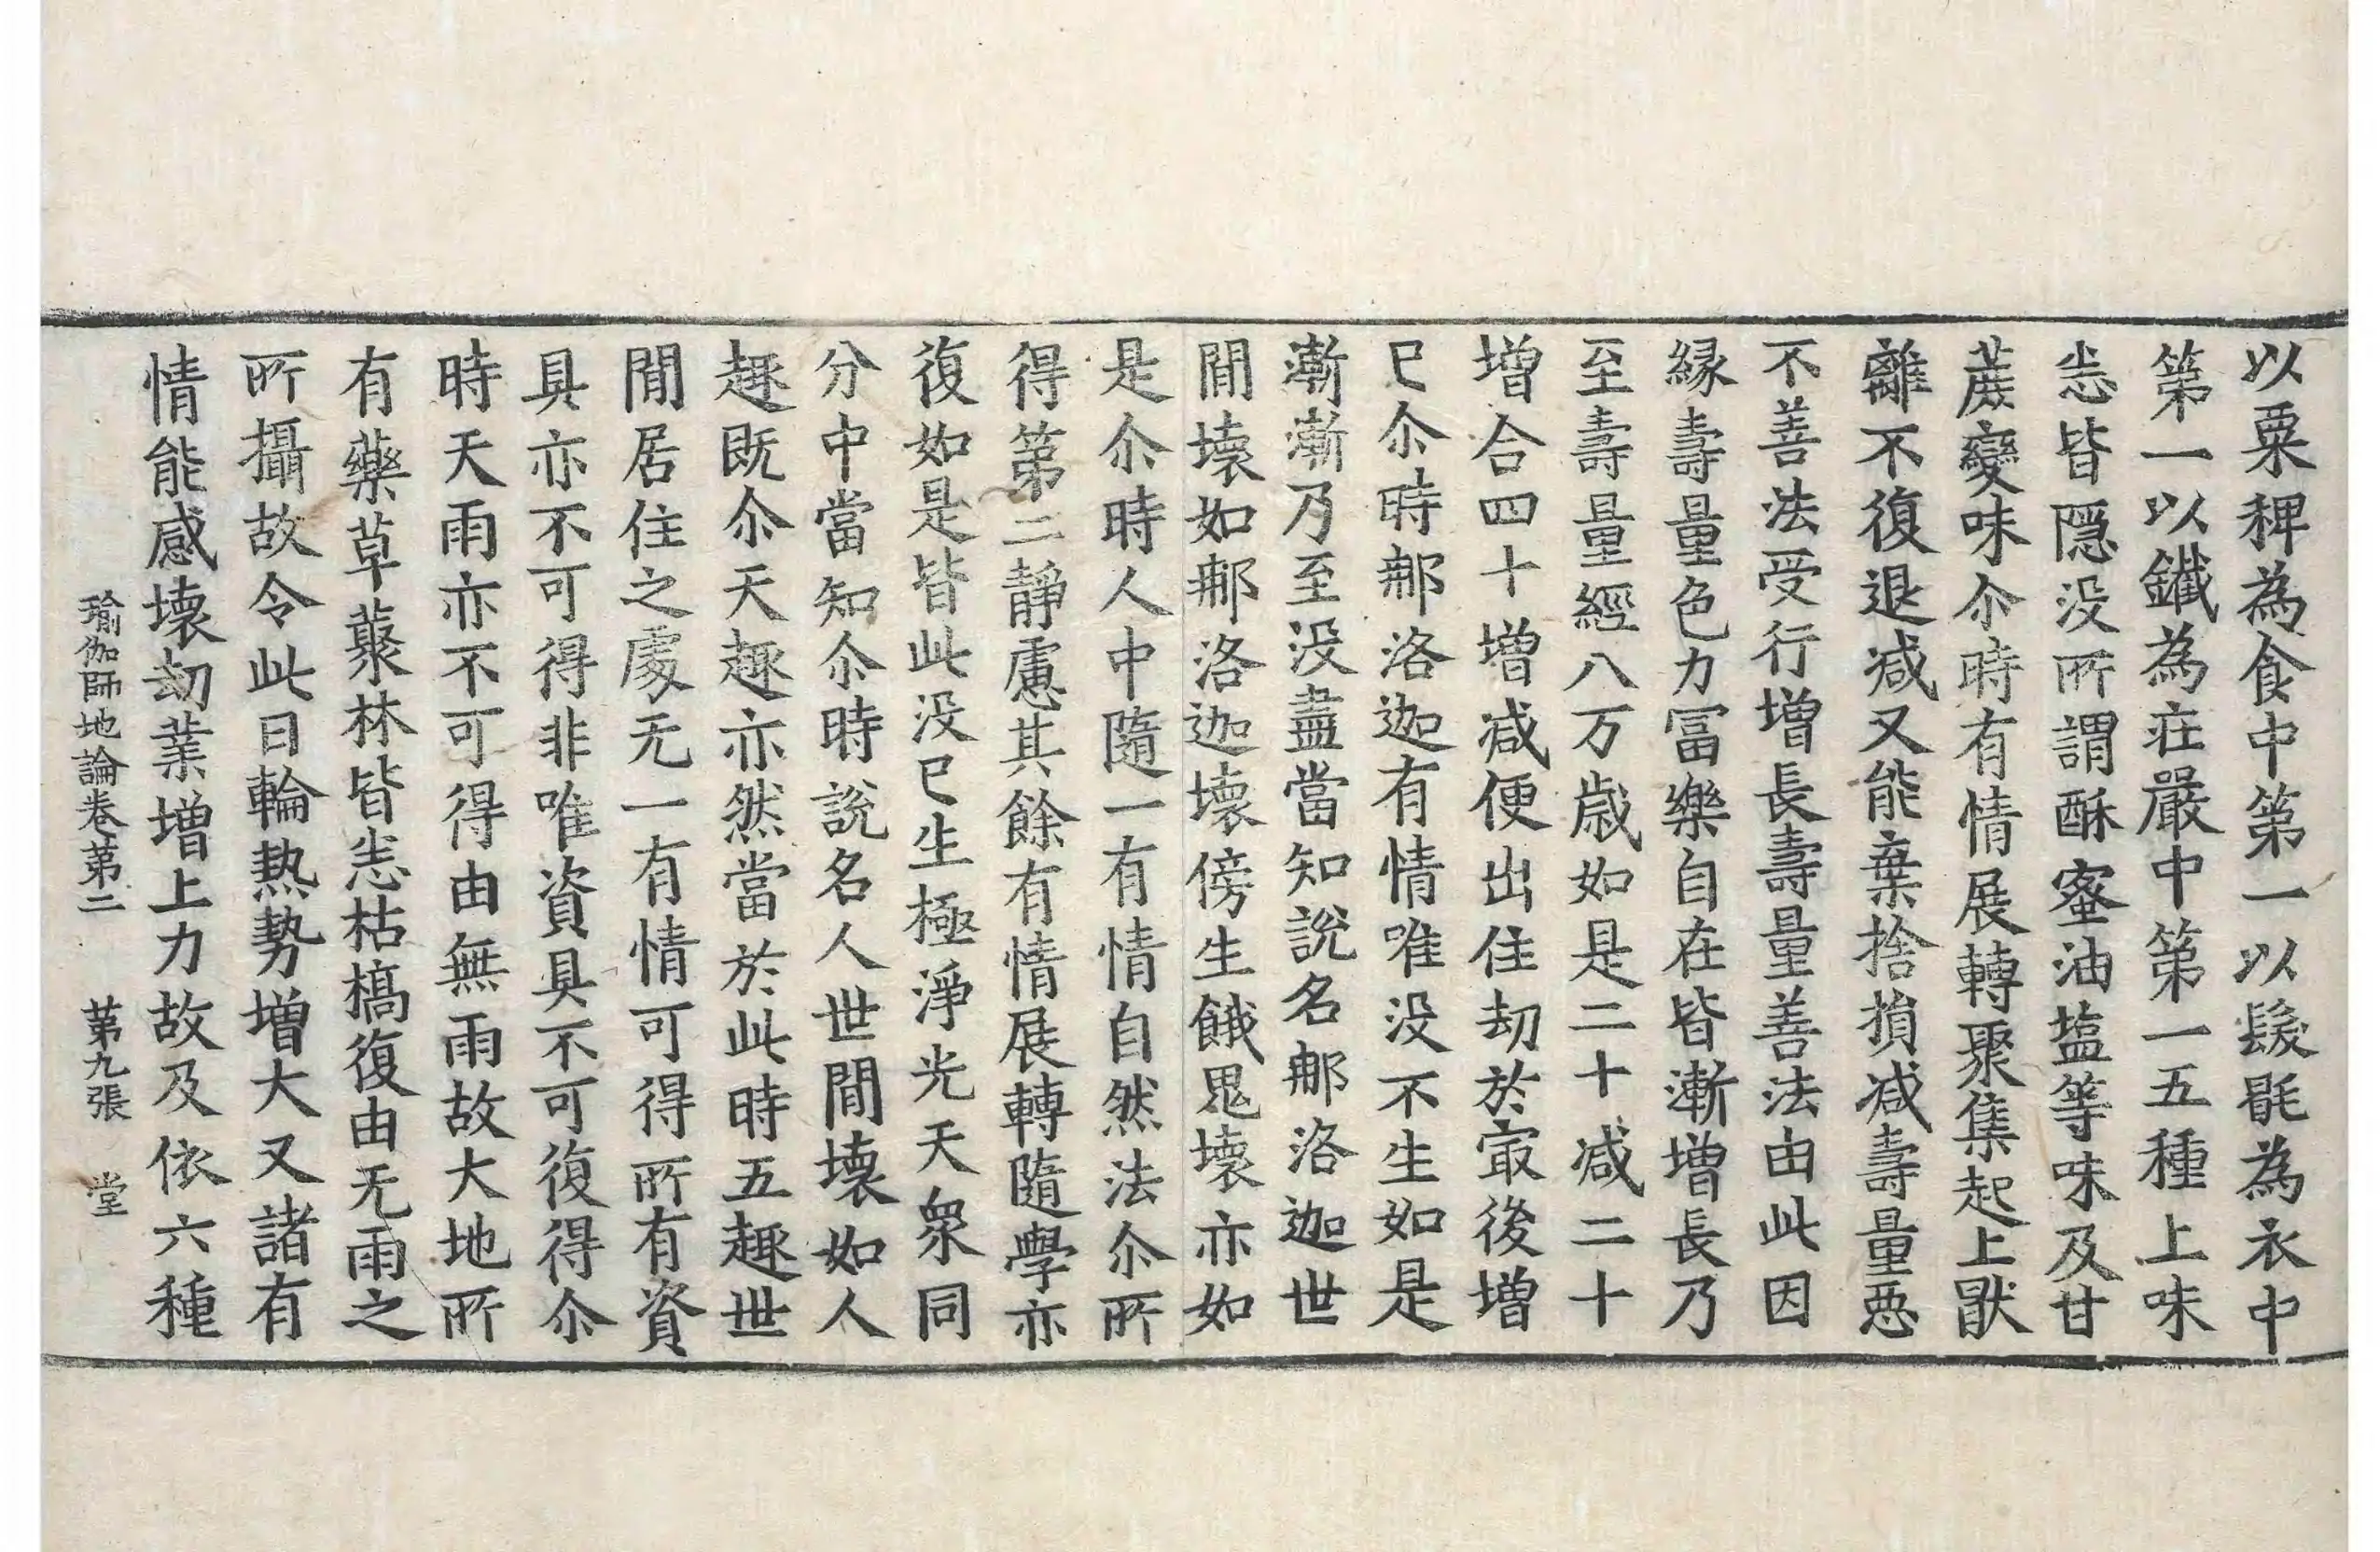 以粟稗為食中第一以髮毼為衣中
第一以鐵為莊嚴中第一五種上味
悉皆隱没所謂酥蜜油塩等味及甘
蔗變味尒時有情展轉聚集起上猒
離不復退減又能棄捨損減壽量惡
不善法受行增長壽量善法由此因
緣壽量色力冨樂自在皆漸增長乃
至壽量經八万歲如是二十減二十
增合四十增減便出住劫於㝡後增
已尒時那洛迦有情唯没不生如是
漸漸乃至没盡當知說名那洛迦世
間壞如那洛迦壞傍生餓鬼壞亦如
是尒時人中隨一有情自然法尒所
得第二靜慮其餘有情展轉隨學亦
復如是皆此没已生極淨光天衆同
分中當知尒時說名人世間壞如人
趣既尒天趣亦然當於此時五趣世
間居住之處无一有情可得所有資
具亦不可得非唯資具不可復得尒
時天雨亦不可得由無雨故大地所
有藥草藂林皆悉枯槁復由无雨之
所攝故令此日輪熱勢增大又諸有
情能感壞劫業增上力故及依六種
瑜伽師地論卷第二 第九張 堂